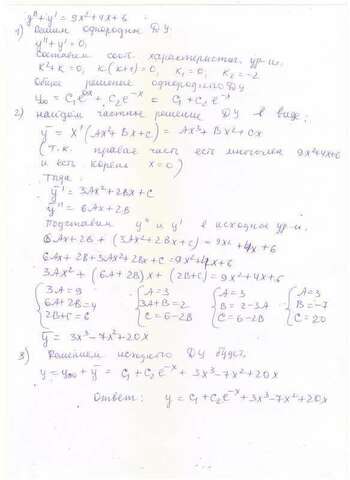 y'' + y' = 9x² + 4x + 6
1) Решим однородны ДУ:
y'' + y' = 0;
Составим соот. характеристич. ур-и.
k² + k = 0, k·(k+1) = 0, k₁ = 0; k₂ = -2
Общее решение однородного ДУ
y₀₀ = C₁e^{0x} + C₂e^{-x} = C₁ + C₂e^{-x}
2) находим частное решение ДУ в виде:
ȳ = x¹(Ax² + Bx + C) = Ax³ + Bx² + Cx
(т.к. правая часть есть многочлен 9x²+4x+6
и есть корень x = 0)
Тогда
ȳ' = 3Ax² + 2Bx + C
ȳ'' = 6Ax + 2B
Подставим y'' и y' в исходное ур-и.
6Ax + 2B + (3Ax² + 2Bx + C) = 9x² + 4x + 6
6Ax + 2B + 3Ax² + 2Bx + C = 9x² + 4x + 6
3Ax² + (6A + 2B)x + (2B + C) = 9x² + 4x + 6
{3A = 9 {A = 3 {A = 3 {A = 3
{6A + 2B = 4 {3A + B = 2 {B = 2 - 3A {B = -7
{2B + C = 6 {C = 6 - 2B {C = 6 - 2B {C = 20
ȳ = 3x³ - 7x² + 20x
3) Решением исходного ДУ будет
y = y₀₀ + ȳ = C₁ + C₂e^{-x} + 3x³ - 7x² + 20x
Ответ: y = C₁ + C₂e^{-x} + 3x³ - 7x² + 20x